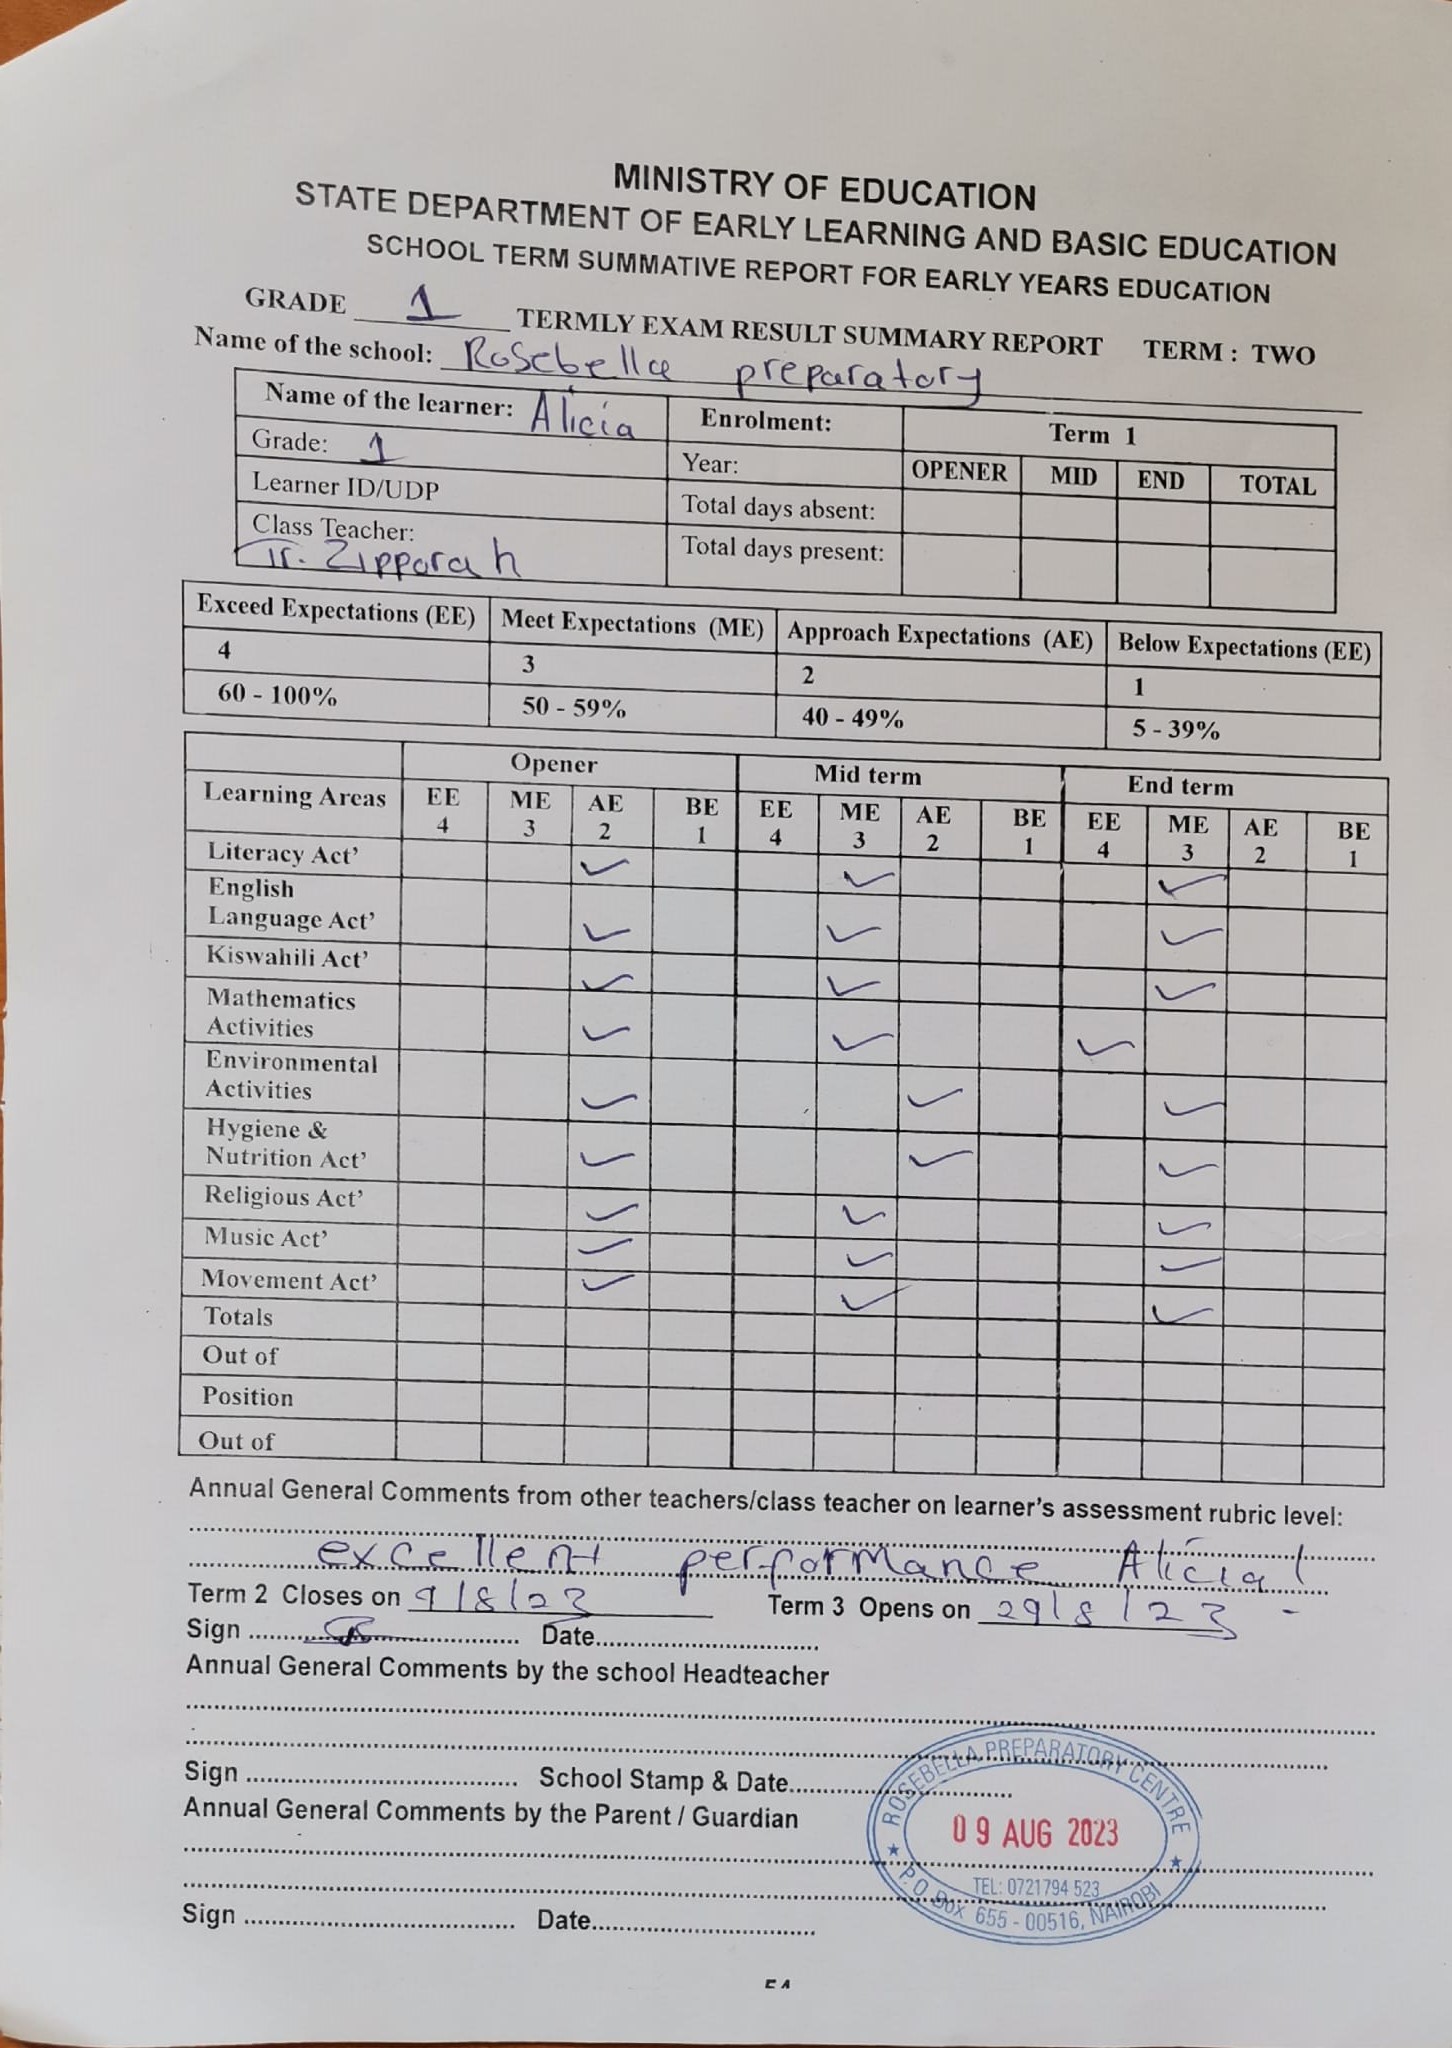 MINISTRY OF EDUCATION
STATE DEPARTMENT OF EARLY LEARNING AND BASIC EDUCATION
SCHOOL TERM SUMMATIVE REPORT FOR EARLY YEARS EDUCATION
GRADE 1 TERMLY EXAM RESULT SUMMARY REPORT TERM : TWO
Name of the school: Rosebella preparatory
Name of the learner: Alicia Enrolment: Term 1
Grade: 1 Year: OPENER MID END TOTAL
Learner ID/UDP Total days absent:
Class Teacher: Total days present:
Tr. Zipporah
Exceed Expectations (EE) Meet Expectations (ME) Approach Expectations (AE) Below Expectations (EE)
4 3 2 1
60 - 100% 50 - 59% 40 - 49% 5 - 39%
Opener Mid term End term
Learning Areas EE ME AE BE EE ME AE BE EE ME AE BE
4 3 2 1 4 3 2 1 4 3 2 1
Literacy Act’ ✓ ✓ ✓
English
Language Act’ ✓ ✓ ✓
Kiswahili Act’ ✓ ✓ ✓
Mathematics
Activities ✓ ✓ ✓
Environmental
Activities ✓ ✓ ✓
Hygiene &
Nutrition Act’ ✓ ✓ ✓
Religious Act’ ✓ ✓ ✓
Music Act’ ✓ ✓ ✓
Movement Act’ ✓ ✓ ✓
Totals
Out of
Position
Out of
Annual General Comments from other teachers/class teacher on learner’s assessment rubric level:
excellent performance Alicia!
Term 2 Closes on 9/8/23 Term 3 Opens on 29/8/23 -
Sign Date
Annual General Comments by the school Headteacher
Sign School Stamp & Date
Annual General Comments by the Parent / Guardian
Sign Date
ROSEBELLA PREPARATORY CENTRE
09 AUG 2023
TEL: 0721794 523
P.O. Box 655 - 00516, NAIROBI